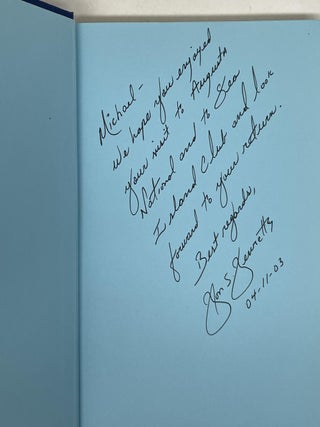 Michael-
We hope you enjoyed
your visit to Augusta
National and to Sea
Island Club and look
forward to your return.
Best regards,
04-11-03